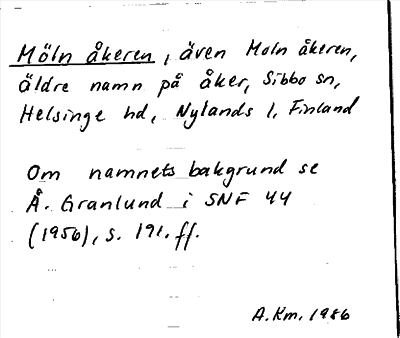 Möln åkeren, även Moln åkeren,
äldre namn på åker, Sibbo sn,
Helsinge hd, Nylands l, Finland
Om namnets bakgrund se
Å. Granlund i SNF 44
(1956), s. 191. ff.
A. Km. 1986